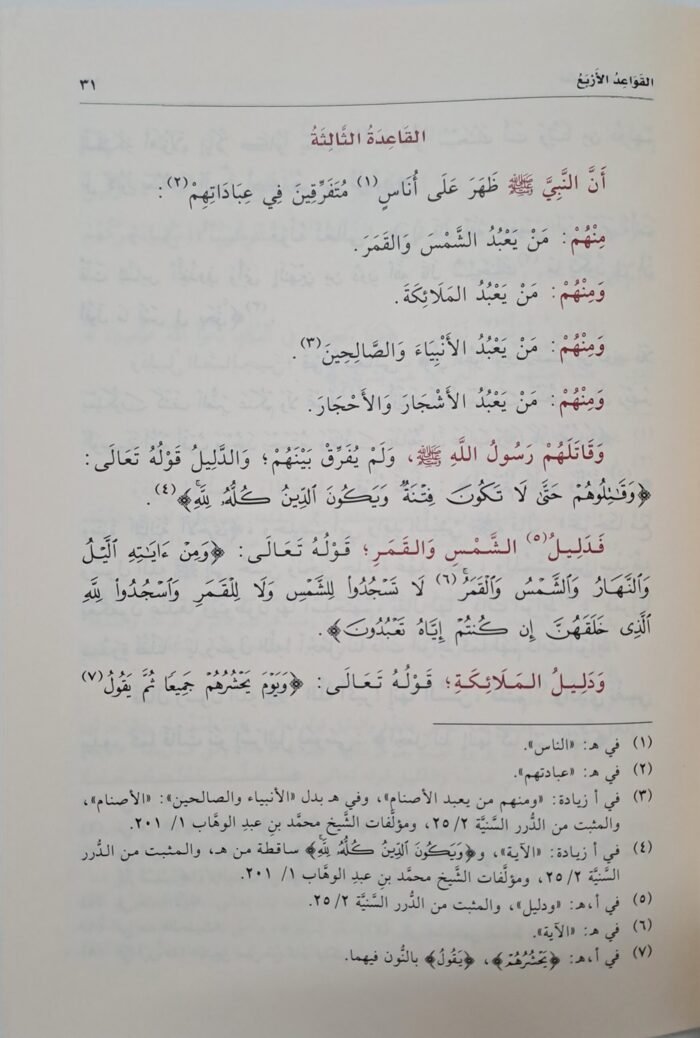 القَوَاعِدُ الأَرْبَعُ ٣١
القَاعِدَةُ الثَّالِثَةُ
أَنَّ النَّبِيَّ ﷺ ظَهَرَ عَلَى أُنَاسٍ(١) مُتَفَرِّقِينَ فِي عِبَادَاتِهِمْ(٢):
مِنْهُمْ: مَنْ يَعْبُدُ الشَّمْسَ وَالقَمَرَ.
وَمِنْهُمْ: مَنْ يَعْبُدُ المَلَائِكَةَ.
وَمِنْهُمْ: مَنْ يَعْبُدُ الأَنْبِيَاءَ وَالصَّالِحِينَ(٣).
وَمِنْهُمْ: مَنْ يَعْبُدُ الأَشْجَارَ وَالأَحْجَارَ.
وَقَاتَلَهُمْ رَسُولُ اللَّهِ ﷺ، وَلَمْ يُفَرِّقْ بَيْنَهُمْ؛ وَالدَّلِيلُ قَوْلُهُ تَعَالَى:
﴿وَقَٰتِلُوهُمْ حَتَّىٰ لَا تَكُونَ فِتْنَةٌ وَيَكُونَ ٱلدِّينُ كُلُّهُۥ لِلَّهِ﴾(٤).
فَدَلِيلُ(٥) الشَّمْسِ وَالقَمَرِ؛ قَوْلُهُ تَعَالَى: ﴿وَمِنْ ءَايَٰتِهِ ٱلَّيْلُ
وَٱلنَّهَارُ وَٱلشَّمْسُ وَٱلْقَمَرُ(٦) لَا تَسْجُدُوا۟ لِلشَّمْسِ وَلَا لِلْقَمَرِ وَٱسْجُدُوا۟ لِلَّهِ
ٱلَّذِى خَلَقَهُنَّ إِن كُنتُمْ إِيَّاهُ تَعْبُدُونَ﴾.
وَدَلِيلُ المَلَائِكَةِ؛ قَوْلُهُ تَعَالَى: ﴿وَيَوْمَ يَحْشُرُهُمْ جَمِيعًا ثُمَّ يَقُولُ(٧)
(١) في هـ: «الناس».
(٢) في هـ: «عبادتهم».
(٣) في أ زيادة: «ومنهم من يعبد الأصنام»، وفي هـ بدل «الأنبياء والصالحين»: «الأصنام»،
والمثبت من الدُّرر السنيَّة ٢/ ٢٥، ومؤلَّفات الشَّيخ محمَّد بنِ عبدِ الوهَّاب ١/ ٢٠١.
(٤) في أ زيادة: «الآية»، و﴿وَيَكُونَ ٱلدِّينُ كُلُّهُۥ لِلَّهِ﴾ ساقطة من هـ، والمثبت من الدُّرر
السَّنيَّة ٢/ ٢٥، ومؤلَّفات الشَّيخ محمَّد بنِ عبدِ الوهَّاب ١/ ٢٠١.
(٥) في أ،هـ: «ودليل»، والمثبت من الدُّرر السَّنيَّة ٢/ ٢٥.
(٦) في هـ: «الآية».
(٧) في أ،هـ: ﴿يَحْشُرُهُمْ﴾، ﴿يَقُولُ﴾ بالنُّون فيهما.